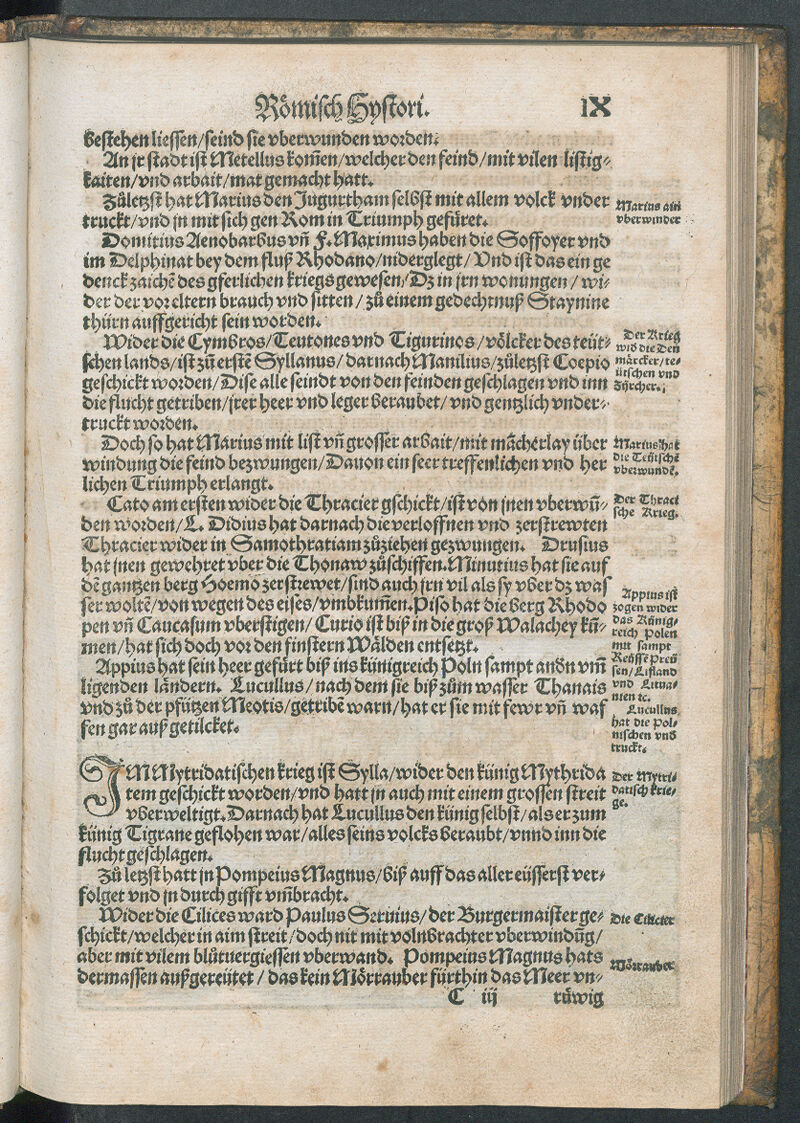 Römisch Hystori. IX
bestehen liessen/seind sie vberwunden worden.
An jr stadt ist Metellus kom̃en/welcher den feind/mit vilen listig-
kaiten/vnd arbait/mat gemacht hatt.
Zůletzst hat Marius den Jugurtham selbst mit allem volck vnder
truckt/vnd jn mit sich gen Rom in Triumph gefüret.
Marius ain
vberwinder
Domitius Aenobarbus vñ F. Maximus haben die Soffoyer vnd
im Delphinat bey dem fluß Rhodano/niderglegt/Vnd ist das ein ge
denck zaichẽ des gferlichen kriegs gewesen/Dz in jrn wonungen/wi-
der der vor eltern brauch vnd sitten/zů einem gedechtnuß Staynine
thürn auffgericht sein worden.
Wider die Cymbros/Teutones vnd Tigurinos/völcker des teüt-
schen lands/ist zů erstẽ Syllanus/darnach Manilius/zůletzst Coepio
geschickt worden/Dise alle seindt von den feinden geschlagen vnd inn
die flucht getriben/jrer heer vnd leger beraubet/vnd gentzlich vnder-
truckt worden.
Der Krieg
wid die Den
märcker/te-
ütschen vnd
Zürcher.
Doch so hat Marius mit list vñ grosser arbait/mit mãcherlay über
windung die feind bezwungen/Dauon ein seer treffenlichen vnd her
lichen Triumph erlangt.
Marius hat
die Teütschẽ
vberwundẽ.
Cato am ersten wider die Thracier gschickt/ist von jnen vberwũ-
den worden/L. Didius hat darnach die verloffnen vnd zerstrewten
Thracier wider in Samothratiam zůziehen gezwungen. Drusius
hat jnen gewehret vber die Thonaw zůschiffen. Minutius hat sie auf
dẽ gantzen berg Hoemo zerstrewet/sind auch jrn vil als sy vber dz was
ser woltẽ/von wegen des eises/vmbkum̃en. Piso hat die berg Rhodo
pen vñ Caucasum vberstigen/Curio ist biß in die groß Walachey kũ-
men/hat sich doch vor den finstern Wälden entsetzt.
Der Thraci
sche Krieg.
Appius hat sein heer gefürt biß ins künigreich Poln sampt andn vm̃
ligenden ländern. Lucullus/nach dem sie biß zům wasser Thanais
vnd zů der pfützen Meotis/getribẽ warn/hat er sie mit fewr vñ waf
fen gar auß getilcket.
Appius ist
zogen wider
das Künig-
reich Polen
mit sampt
Reüssẽ Preü
sen/Lifland
vnd Litua-
nien ꝛc.
Lucullus
hat die Pol-
nischen vnd
truckt.
IM Mytridatischen krieg ist Sylla/wider den künig Mythrida
tem geschickt worden/vnd hatt jn auch mit einem grossen streit
vberweltigt. Darnach hat Lucullus den künig selbst/als er zum
künig Tigrane geflohen war/alles seins volcks beraubt/vnnd inn die
flucht geschlagen.
Der Mytri-
datisch krie-
ge.
Zů letzst hatt jn Pompeius Magnus/biß auff das aller eüsserst ver-
folget vnd jn durch gifft vm̃bracht.
Wider die Cilices ward Paulus Seruius/der Burgermaister ge-
schickt/welcher in aim streit/doch nit mit volnbrachter vberwindũg/
aber mit vilem blůtuergiessen vberwand. Pompeius Magnus hats
dermassen außgereütet/das kein Mörrauber fürthin das Meer vn-
Die Cilicier
Mörrauber
C iij rüwig